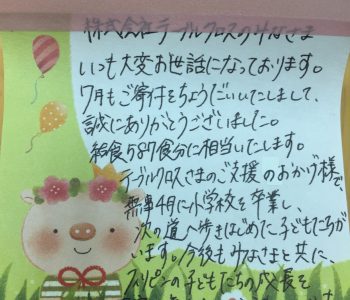 株式会社テーブルクロスのみなさま
いつも大変お世話になっております。
7月もご寄付をちょうだいいたしまして、
誠にありがとうございました。
給食587食分に相当いたします。
テーブルクロスさまのご支援のおかげ様で、
無事4月に小学校を卒業し、
次の道へ歩をはじめた子どもたちが
います。今後もみなさまと共に、
フィリピンの子どもたちの成長を